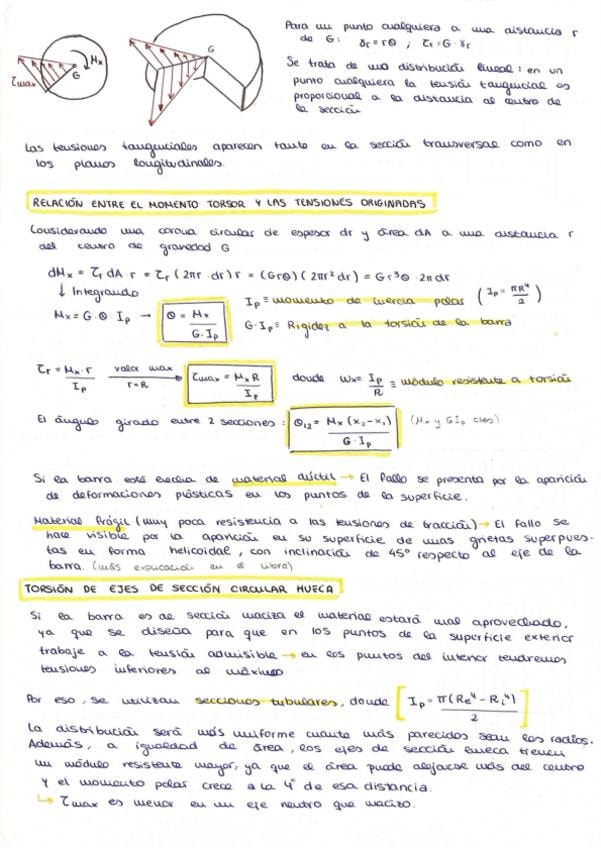 Mx
G
τmax
G
Para un punto cualquiera a una distancia r
de G: γr = rθ ; τr = G · γr
Se trata de una distribución lineal: en un
punto cualquiera la tensión tangencial es
proporcional a la distancia al centro de
la sección
Las tensiones tangenciales aparecen tanto en la sección transversal como en
los planos longitudinales.
RELACIÓN ENTRE EL MOMENTO TORSOR Y LAS TENSIONES ORIGINADAS
Considerando una corona circular de espesor dr y área dA a una distancia r
del centro de gravedad G
dMx = τr dA · r = τr (2πr · dr) r = (Grθ) (2πr² dr) = Gr³θ · 2π dr
↓ Integrando
Mx = G · θ · Ip → θ = Mx / G · Ip
Ip ≡ momento de inercia polar (Ip = πR⁴ / 2)
G · Ip ≡ Rigidez a la torsión de la barra
τr = Mx · r / Ip valor max r=R → τmax = Mx R / Ip donde Wx = Ip / R ≡ módulo resistente a torsión
El ángulo girado entre 2 secciones: θ12 = Mx (x2 - x1) / G · Ip (Mx y GIp ctes)
Si la barra está hecha de material dúctil → El fallo se presenta por la aparición
de deformaciones plásticas en los puntos de la superficie.
Material frágil (muy poca resistencia a las tensiones de tracción) → El fallo se
hace visible por la aparición en su superficie de unas grietas superpues-
tas en forma helicoidal, con inclinación de 45º respecto al eje de la
barra. (más explicación en el libro)
TORSIÓN DE EJES DE SECCIÓN CIRCULAR HUECA
Si la barra es de sección maciza el material estará mal aprovechado,
ya que se diseña para que en los puntos de la superficie exterior
trabaje a la tensión admisible → en los puntos del interior tendremos
tensiones inferiores al máximo
Por eso, se utilizan secciones tubulares, donde [Ip = π(Re⁴ - Ri⁴) / 2]
La distribución será más uniforme cuante más parecidos sean los radios.
Además, a igualdad de área, los ejes de sección hueca tienen
un módulo resistente mayor, ya que el área puede alejarse más del centro
y el momento polar crece a la 4ª de esa distancia.
↳ τmax es menor en un eje neutro que macizo.